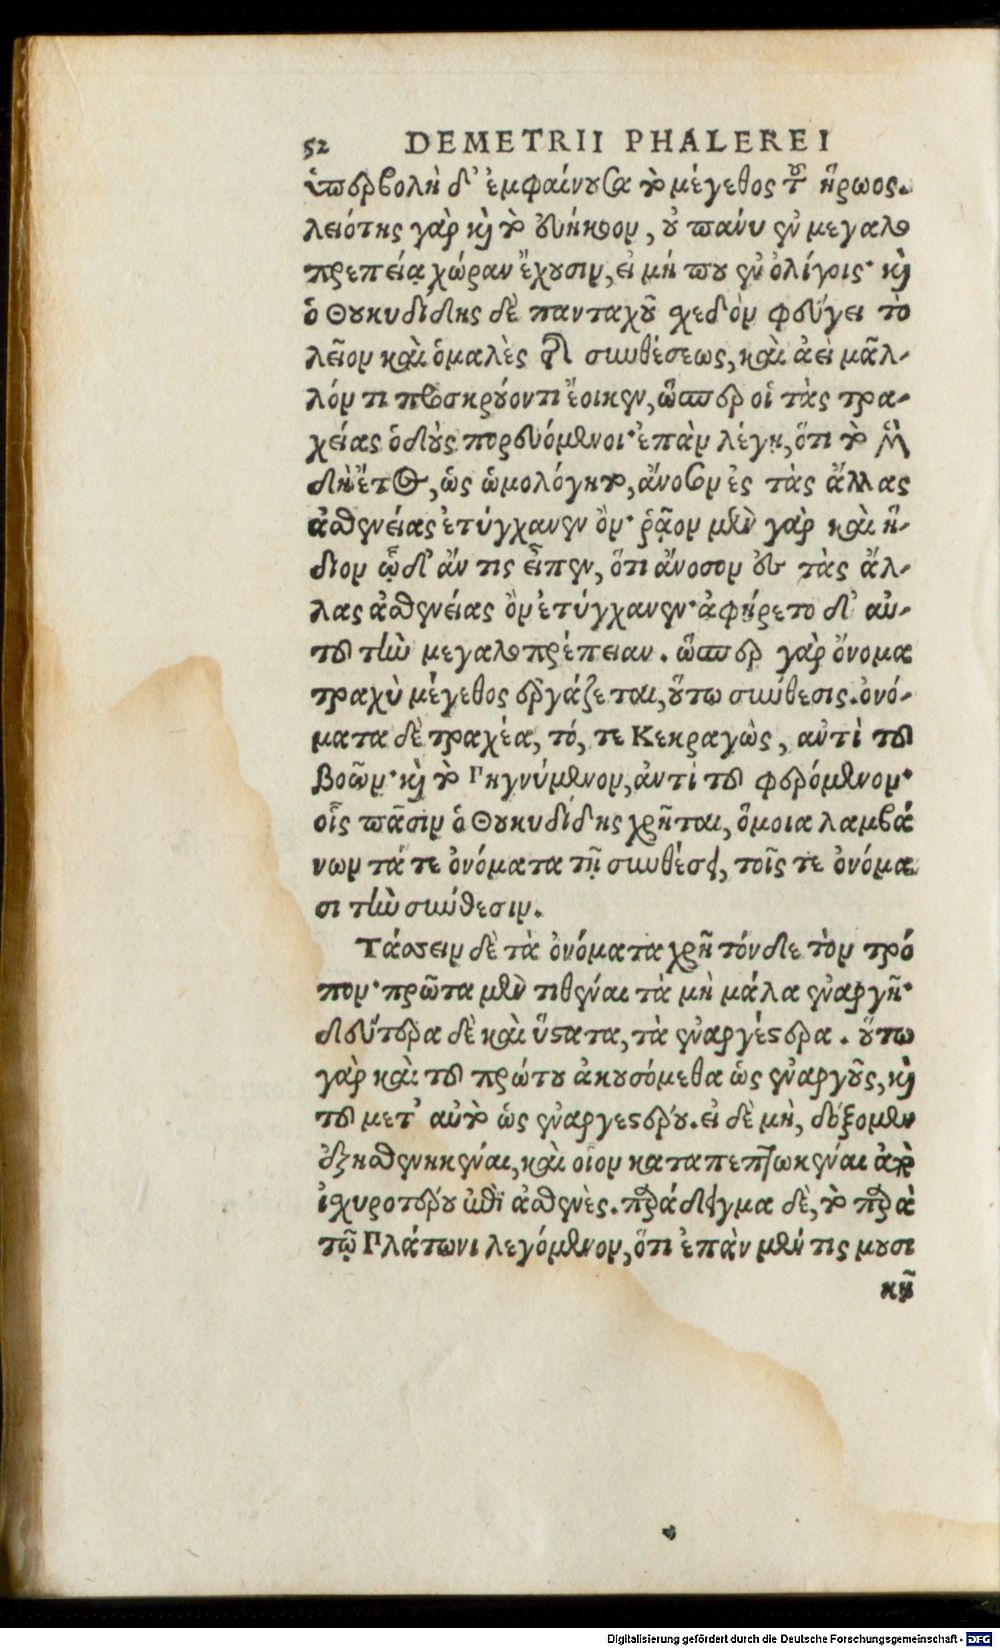 52 DEMETRII PHALEREI
ὑπερβολὴ δ' ἐμφαίνουσα τὸ μέγεθος τοῦ ἥρωος.
λειότης γὰρ καὶ τὸ εὐήκοον, οὐ πάνυ ἐν μεγαλο
πρεπείᾳ χώραν ἔχουσιν, εἰ μή που ἐν ὀλίγοις· καὶ
ὁ Θουκυδίδης δὲ πανταχοῦ σχεδὸν φεύγει τὸ
λεῖον καὶ ὁμαλὲς τῆς συνθέσεως, καὶ ἀεὶ μᾶλ-
λόν τι προσκρούοντι ἔοικεν, ὥσπερ οἱ τὰς τρα-
χείας ὁδοὺς πορευόμενοι· ἐπὰν λέγῃ, ὅτι τὸ μὲν
δὴ ἔτος, ὡς ὡμολόγητο, ἄνοσον ἐς τὰς ἄλλας
ἀσθενείας ἐτύγχανεν ὄν· ῥᾷον μὲν γὰρ καὶ ἥ-
διον ὧδ' ἄν τις εἶπεν, ὅτι ἄνοσον ἐς τὰς ἄλ-
λας ἀσθενείας ὂν ἐτύγχανεν· ἀφῄρετο δ' αὐ-
τοῦ τὴν μεγαλοπρέπειαν. ὥσπερ γὰρ ὄνομα
τραχὺ μέγεθος ἐργάζεται, οὕτω σύνθεσις. ὀνό-
ματα δὲ τραχέα, τό, τε Κεκραγὼς, αὐτὶ τοῦ
βοῶν· καὶ τὸ Ρηγνύμενον, ἀντὶ τοῦ φερόμενον·
οἷς πᾶσιν ὁ Θουκυδίδης χρῆται, ὅμοια λαμβά
νων τά τε ὀνόματα τῇ συνθέσει, τοῖς τε ὀνόμα
σι τὴν σύνθεσιν.
Τάσσειν δὲ τὰ ὀνόματα χρῆ τόνδε τὸν τρό
πον· πρῶτα μὲν τιθέναι τὰ μὴ μάλα ἐναργῆ·
δεύτερα δὲ καὶ ὕστατα, τὰ ἐναργέστερα. οὕτω
γὰρ καὶ τοῦ πρώτου ἀκουσόμεθα ὡς ἐναργοῦς, καὶ
τοῦ μετ' αὐτὸ ὡς ἐναργεστέρου. εἰ δὲ μὴ, δόξομεν
ἐξησθενηκέναι, καὶ οἷον καταπεπτωκέναι ἀπὸ
ἰσχυροτέρου ἐπὶ ἀσθενὲς. παράδειγμα δὲ, τὸ παρὰ
τῷ Πλάτωνι λεγόμενον, ὅτι ἐπὰν μέν τις μουσι
κῇ
Digitalisierung gefördert durch die Deutsche Forschungsgemeinschaft - DFG